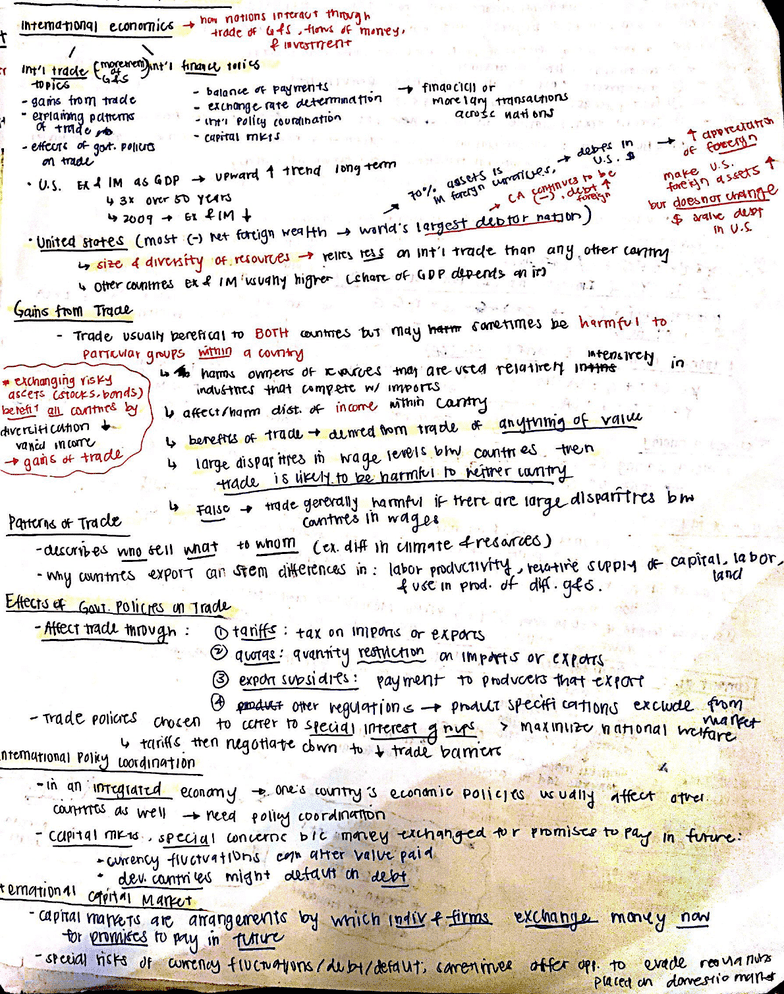 International economics → how nations interact through
trade of G&S, flows of money,
& investment
Int'l trade (movement of G&S) int'l finance topics
topics
- gains from trade
- explaining patterns
of trade
- effects of govt. policies
on trade
- balance of payments
- exchange rate determination
- int'l policy coordination
- capital mkts
→ financial or
monetary transactions
across nations
• U.S. EX & IM as GDP → upward ↑ trend long term
↳ 3x over 50 years
↳ 2009 → EX & IM ↓
→ 70% assets is
in foreign currencies,
→ debts in
U.S. $
→ ↑ appreciation
of foreign
make U.S.
foreign assets ↑
but does not change
$ value debt
in U.S
→ CA continues to be
(-) . debt ↑
foreign
• United States (most (-) net foreign wealth → world's largest debtor nation)
↳ size & diversity of resources → relies less on int'l trade than any other country
↳ other countries EX & IM usually higher (share of GDP depends on it)
Gains from Trade
- Trade usually beneficial to BOTH countries but may harm sometimes be harmful to
particular groups within a country
↳ harms owners of resources that are used relatively intensively in
industries that compete w/ imports
↳ affect/harm dist. of income within country
↳ benefits of trade → derived from trade of anything of value
↳ large disparities in wage levels btw countries then
trade is likely to be harmful to neither country
↳ False → trade generally harmful if there are large disparities btw
countries in wages
* exchanging risky
assets (stocks, bonds)
benefit all countries by
diversification ↓
varied income
→ gains of trade
Patterns of Trade
- describes who sell what to whom (ex. diff in climate & resources)
- why countries export can stem differences in: labor productivity, relative supply of capital, labor,
land
& use in prod. of diff. g&s.
Effects of Govt. Policies on Trade
- Affect trade through: ① tariffs: tax on imports or exports
② quotas: quantity restriction on imports or exports
③ export subsidies: payment to producers that export
④ product other regulations → product specifications exclude from
market
- Trade policies chosen to cater to special interest groups > maximize national welfare
↳ tariffs then negotiate down to ↓ trade barriers
nternational Policy Coordination
- in an integrated economy → one's country's economic policies usually affect other
countries as well → need policy coordination
- capital mkts, special concerns b/c money exchanged for promises to pay in future:
• currency fluctuations can alter value paid
• dev. countries might default on debt
ternational Capital Market
- capital markets are arrangements by which indiv & firms exchange money now
for promises to pay in future
- special risks of currency fluctuations/debt/default; sometimes offer opp. to evade regulations
placed on domestic market